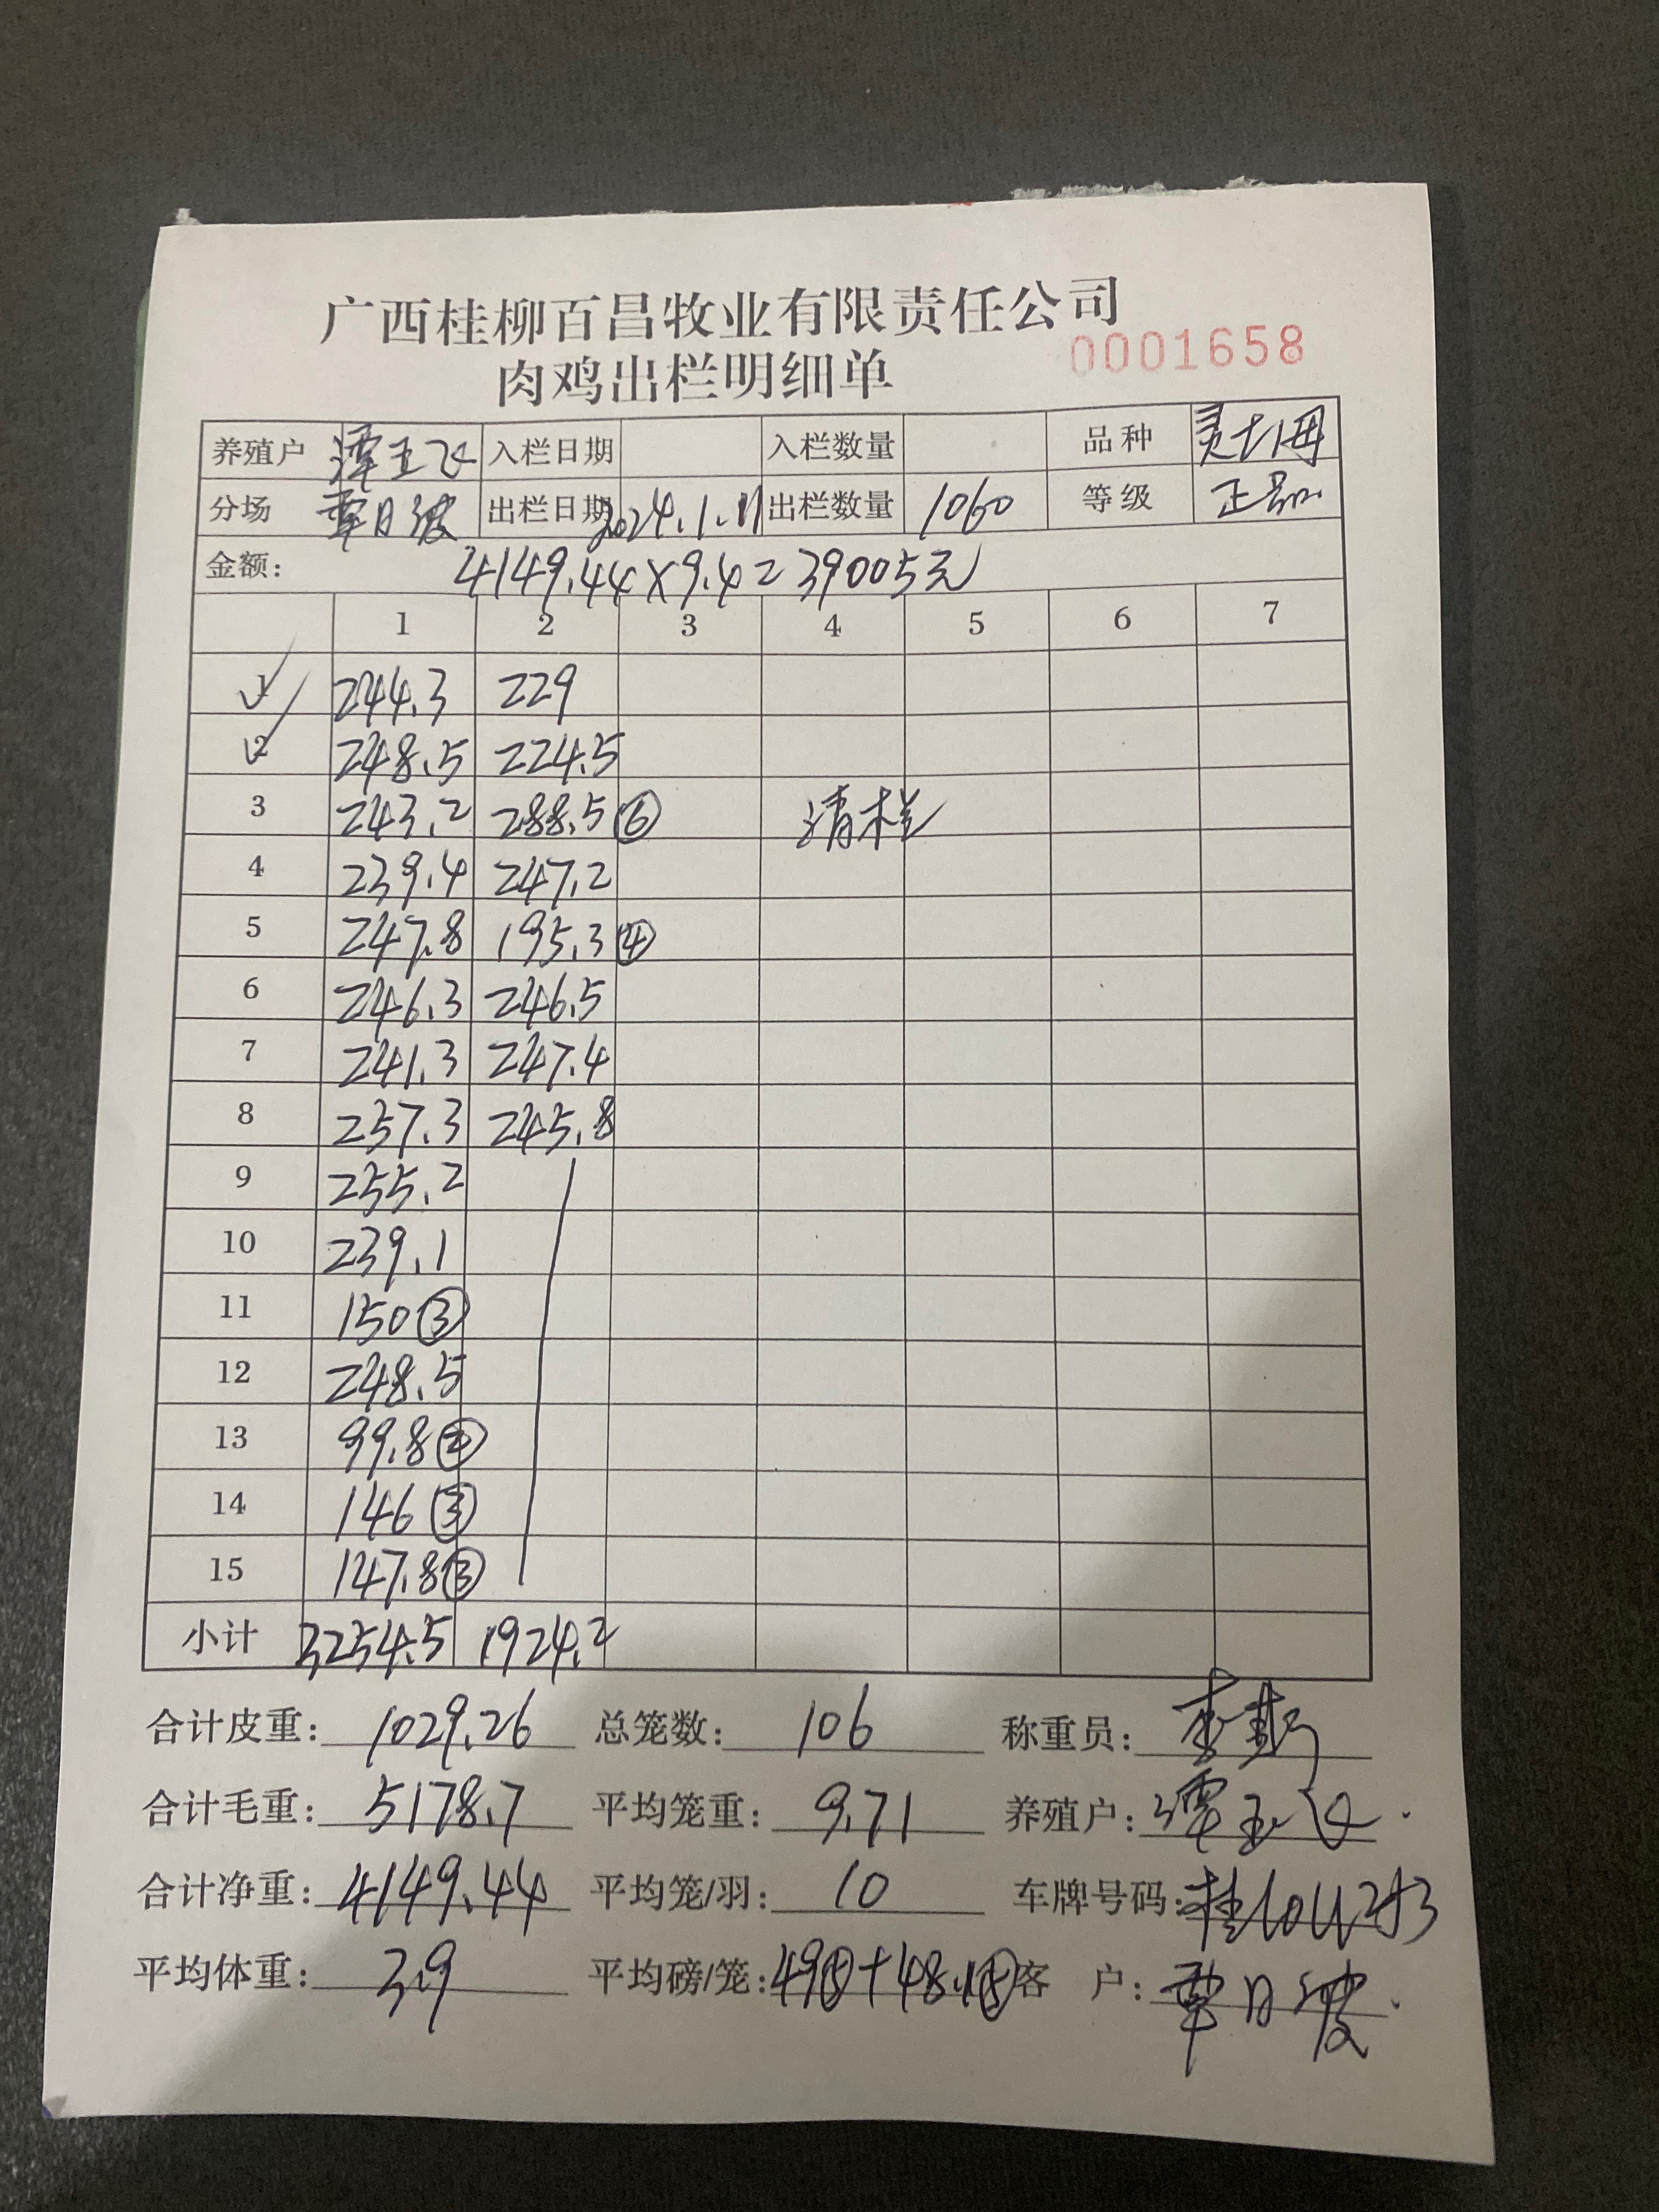 广西桂柳百昌牧业有限责任公司
肉鸡出栏明细单
0001658
养殖户 潭玉飞 入栏日期 入栏数量 品种
分场 覃日波 出栏日期 2024.1.11 出栏数量 1060 等级 正品
金额: 4149.44×9.4=39005元
1 2 3 4 5 6 7
1 244.3 229
2 248.5 224.5
3 243.2 288.5⑥ 清栏
4 239.4 247.2
5 247.8 195.3④
6 246.3 246.5
7 241.3 247.4
8 257.3 245.8
9 255.2
10 239.1
11 150③
12 248.5
13 99.8②
14 146③
15 147.8③
小计 3254.5 1924.2
合计皮重: 1029.26 总笼数: 106 称重员:
合计毛重: 5178.7 平均笼重: 9.71 养殖户: 潭玉飞
合计净重: 4149.44 平均笼/羽: 10 车牌号码:
平均体重: 3.9 平均磅/笼: 客户: 覃日波